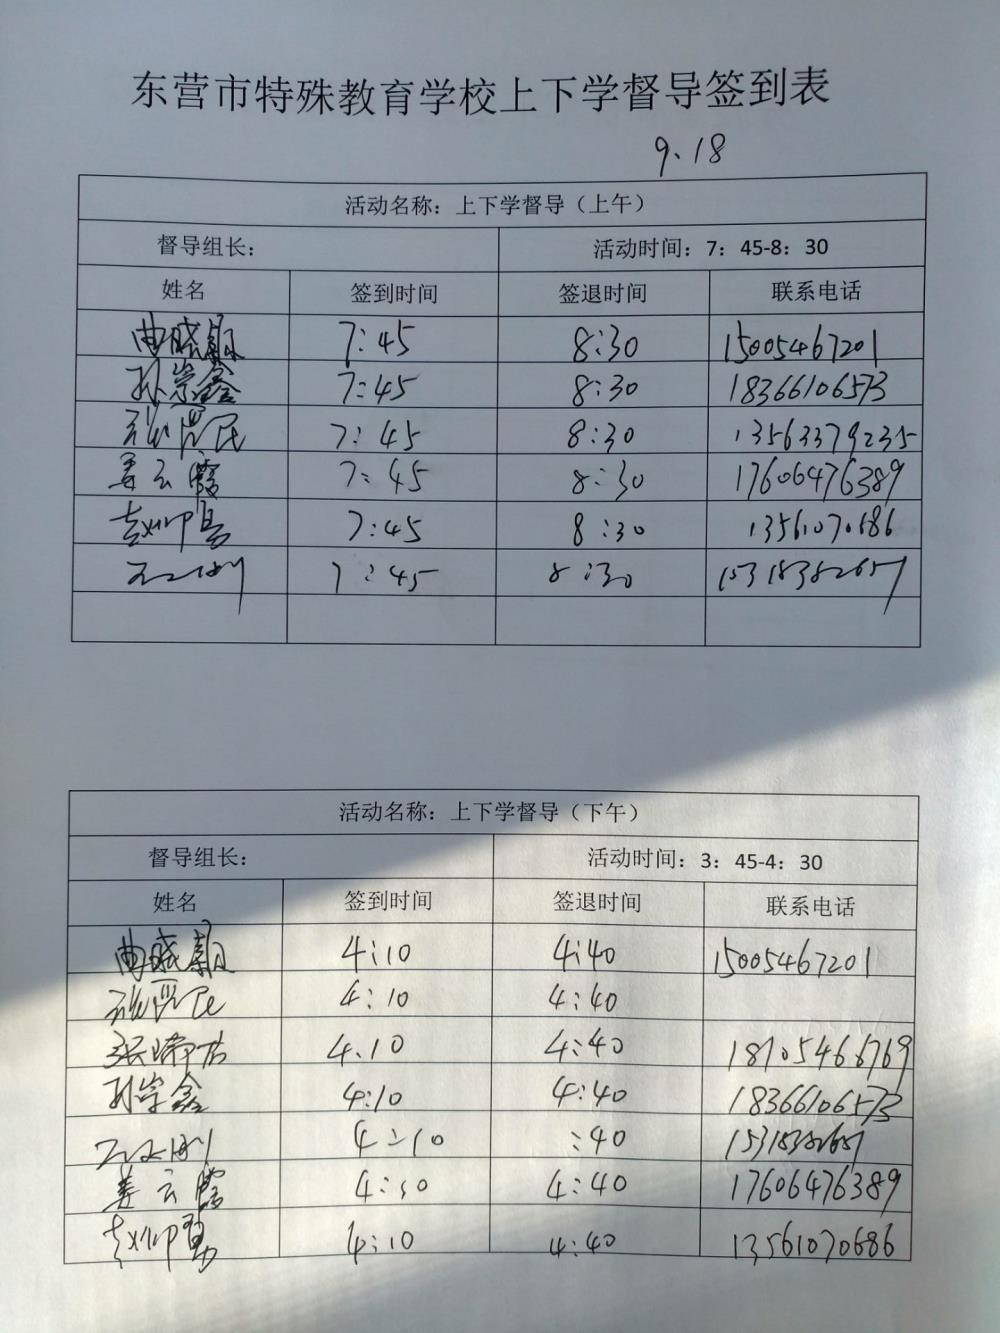 东营市特殊教育学校上下学督导签到表
9.18
活动名称：上下学督导（上午）
督导组长： 活动时间：7：45-8：30
姓名 签到时间 签退时间 联系电话
曲晓颖 7:45 8:30 15005467201
孙崇鑫 7:45 8:30 18366106573
7:45 8:30 13563379235
姜云霞 7:45 8:30 17606476389
7:45 8:30 13561070686
7:45 8:30 15318382657
活动名称：上下学督导（下午）
督导组长： 活动时间：3：45-4：30
姓名 签到时间 签退时间 联系电话
曲晓颖 4:10 4:40 15005467201
4:10 4:40
4.10 4:40 18705466769
孙崇鑫 4:10 4:40 18366106573
4:10 :40 15318382657
姜云霞 4:10 4:40 17606476389
4:10 4:40 13561070686